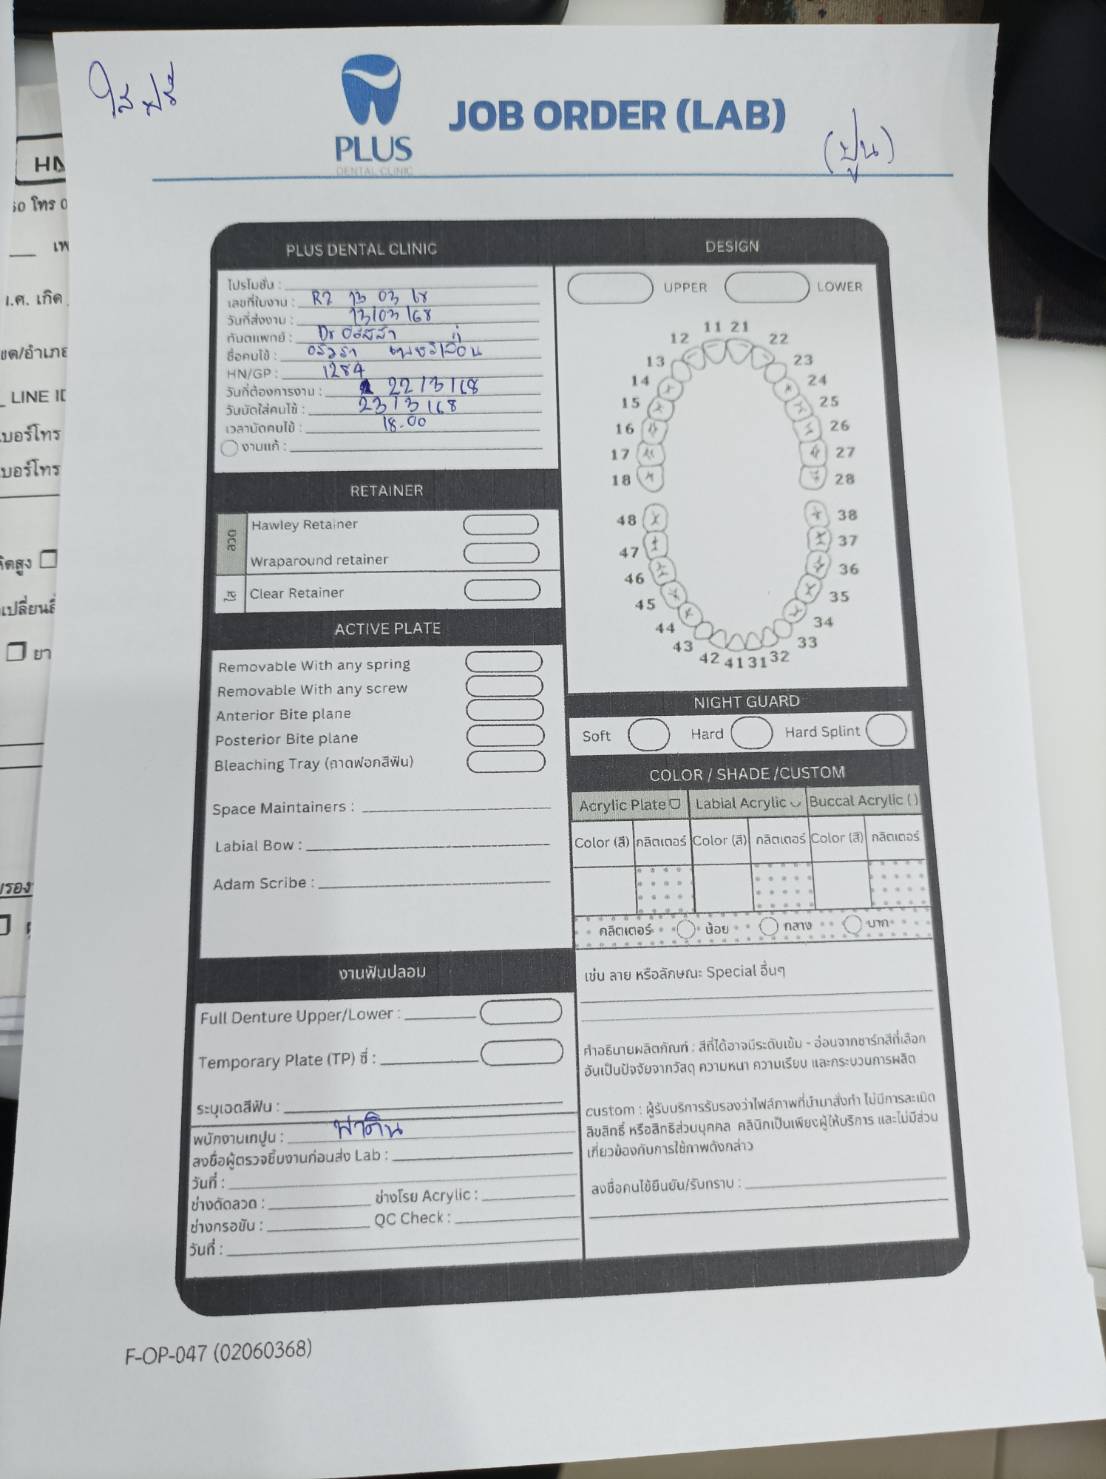 ใช้ฟรี
PLUS
DENTAL CLINIC
JOB ORDER (LAB)
(ปูน)
PLUS DENTAL CLINIC
โปรโมชั่น :
เลขที่ใบงาน : R2 13 03 68
วันที่ส่งงาน : 13/03/68
ทันตแพทย์ : Dr
ชื่อคนไข้ :
HN/GP : 1284
วันที่ต้องการงาน : 22/3/68
วันนัดใส่คนไข้ : 23/3/68
เวลานัดคนไข้ : 18.00
งานแก้ :
RETAINER
ลวด
Hawley Retainer
Wraparound retainer
ใส
Clear Retainer
ACTIVE PLATE
Removable With any spring
Removable With any screw
Anterior Bite plane
Posterior Bite plane
Bleaching Tray (ถาดฟอกสีฟัน)
Space Maintainers :
Labial Bow :
Adam Scribe :
งานฟันปลอม
Full Denture Upper/Lower :
Temporary Plate (TP) ซี่ :
ระบุเฉดสีฟัน :
พนักงานเมนู :
ลงชื่อผู้ตรวจเช็คงานก่อนส่ง Lab :
วันที่ :
ช่างดัดลวด : ช่างโรย Acrylic :
ช่างกรอขัน : QC Check :
วันที่ :
DESIGN
UPPER LOWER
11 21
12 22
13 23
14 24
15 25
16 26
17 27
18 28
48 38
47 37
46 36
45 35
44 34
43 33
42 41 31 32
NIGHT GUARD
Soft Hard Hard Splint
COLOR / SHADE /CUSTOM
Acrylic Plate Labial Acrylic Buccal Acrylic ( )
Color (สี) กลิตเตอร์ Color (สี) กลิตเตอร์ Color (สี) กลิตเตอร์
กลิตเตอร์ น้อย กลาง มาก
เช่น ลาย หรือลักษณะ Special อื่นๆ
คำอธิบายผลิตภัณฑ์ : สีที่ได้อาจมีระดับเข้ม - อ่อนจากชาร์ทสีที่เลือก
อันเป็นปัจจัยจากวัสดุ ความหนา ความเรียบ และกระบวนการผลิต
custom : ผู้รับบริการรับรองว่าไฟล์ภาพที่นำมาสั่งทำ ไม่มีการละเมิด
ลิขสิทธิ์ หรือสิทธิส่วนบุคคล คลินิกเป็นเพียงผู้ให้บริการ และไม่มีส่วน
เกี่ยวข้องกับการใช้ภาพดังกล่าว
ลงชื่อคนไข้ยืนยัน/รับทราบ :
F-OP-047 (02060368)
HN
LINE ID
เบอร์โทร
เบอร์โทร